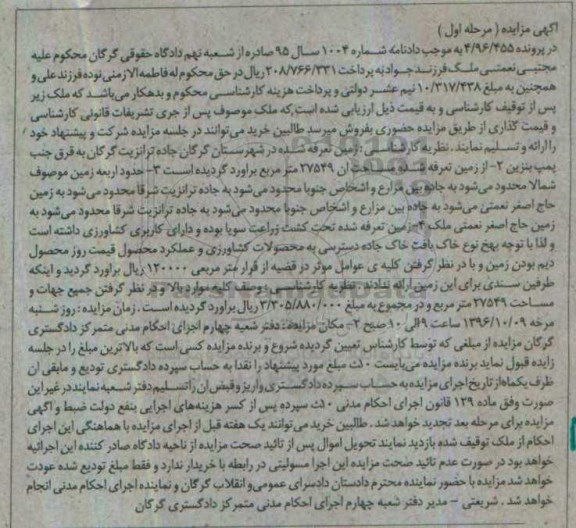 آگهی مزایده ( مرحله اول )
در پرونده ۴/۹۶/۴۵۵ به موجب دادنامه شماره ۱۰۰۴ سال ۹۵ صادره از شعبه نهم دادگاه حقوقی گرگان محکوم علیه
مجتبی نعمتی ملک فرزند جواد به پرداخت ۲۰۸/۷۶۶/۳۳۱ ریال در حق محکوم له فاطمه الازمنی نوده فرزند علی و
همچنین به مبلغ ۱۰/۳۱۷/۴۳۸ نیم عشر دولتی و پرداخت هزینه کارشناسی محکوم و بدهکار می‌باشد که ملک زیر
پس از توقیف کارشناسی و به قیمت ذیل ارزیابی شده است که ملک موصوف پس از جری تشریفات قانونی کارشناسی
و قیمت گذاری از طریق مزایده حضوری بفروش میرسد طالبین خرید می‌توانند در جلسه مزایده شرکت و پیشنهاد خود
را ارائه و تسلیم نمایند. نظریه کارشناسی : زمین تعرفه شده در شهرستان گرگان جاده ترانزیت گرگان به قرق جنب
پمپ بنزین ۲- از زمین تعرفه شده مساحت آن ۲۷۵۴۹ متر مربع براورد گردیده است ۳- حدود اربعه زمین موصوف
شمالا محدود می‌شود به جاده بین مزارع و اشخاص جنوبا محدود می‌شود به جاده ترانزیت شرقا محدود می‌شود به زمین
حاج اصغر نعمتی می‌شود به جاده بین مزارع و اشخاص جنوبا محدود می‌شود به جاده ترانزیت شرقا محدود می‌شود به
زمین حاج اصغر نعمتی ملک ۴- زمین تعرفه شده تحت کشت زراعت سویا بوده و دارای کاربری کشاورزی داشته است
و لذا با توجه بهخ نوع خاک بافت خاک جاده دسترسی به محصولات کشاورزی و عملکرد محصول قیمت روز محصول
دیم بودن زمین و با در نظر گرفتن کلیه ی عوامل موثر در قضیه از قرار متر مربعی ۱۲۰۰۰۰ ریال براورد گردید و اینکه
طرفین سندی برای این زمین ارائه ندادند. نظریه کارشناسی : وصف کلیه موارد بالا و در نظر گرفتن جمیع جهات و
مساحت ۲۷۵۴۹ متر مربع و در مجموع به مبلغ ۳/۳۰۵/۸۸۰/۰۰۰ ریال براورد گردیده است. زمان مزایده : روز شنبه
مرخه ۱۳۹۶/۱۰/۰۹ ساعت ۹ الی ۱۰ صبح ۲- مکان مزایده : دفتر شعبه چهارم اجرای احکام مدنی متمرکز دادگستری
گرگان مزایده از مبلغی که توسط کارشناس تعیین گردیده شروع و برنده مزایده کسی است که بالاترین مبلغ را در جلسه
زایده قبول نماید برنده مزایده می‌بایست ۱۰٪ مبلغ مورد پیشنهاد را نقدا به حساب سپرده دادگستری تودیع و مابقی ان
ظرف یکماه از تاریخ اجرای مزایده به حساب سپرده دادگستری واریز و قبض ان را تسلیم دفتر شعبه نمایند در غیر این
صورت وفق ماده ۱۲۹ قانون اجرای احکام مدنی ۱۰٪ سپرده پس از کسر هزینه‌های اجرایی بنفع دولت ضبط و آگهی
مزایده برای مرحله بعد تجدید خواهد شد. طالبین خرید می‌توانند یک هفته قبل از اجرای مزایده با هماهنگی این اجرای
احکام از ملک توقیف شده بازدید نمایند تحویل اموال پس از تائید صحت مزایده از ناحیه دادگاه صادر کننده این اجرائیه
خواهد بود در صورت عدم تائید صحت مزایده این اجرا مسولیتی در رابطه با خریدار ندارد و فقط مبلغ تودیع شده عودت
خواهد شد مزایده با حضور نماینده محترم دادستان دادسرای عمومی و انقلاب گرگان و نماینده اجرای احکام مدنی انجام
خواهد شد . شریعتی - مدیر دفتر شعبه چهارم اجرای احکام مدنی متمرکز دادگستری گرگان